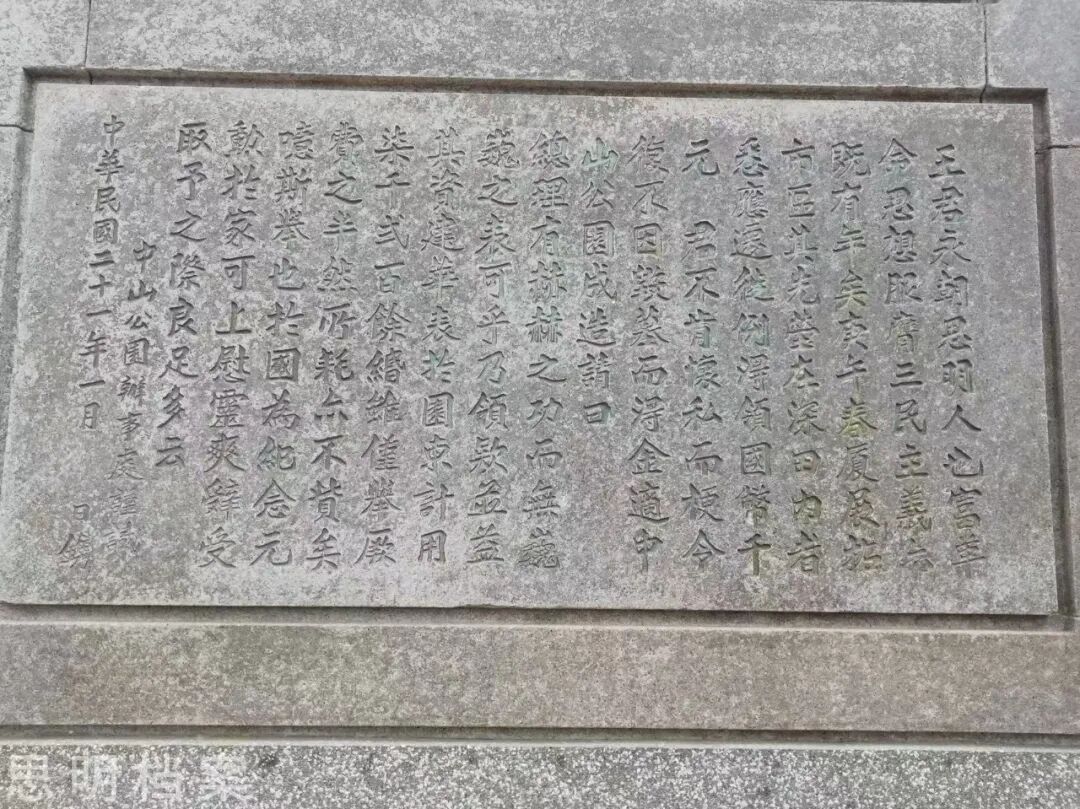 王君永朝思明人也富革
命思想服膺三民主義亦
既有年矣庚午春厦展拓
市區其先塋在深田內者
悉應遷徙例淂領國幣千
元 君不肯懷私而梗令
復不因毀墓而淂金適中
山公園成造請曰
總理有赫赫之功而無巍
巍之表可乎乃領欵並益
其資建華表於園東計用
柒千弍百餘緡雖僅舉厥
費之半然所耗亦不貲矣
噫斯舉也於國為紀念元
勳於家可上慰靈爽辭受
取予之際良足多云
中山公園辦事處謹識
中華民國二十一年一月 日鐫
思明档案